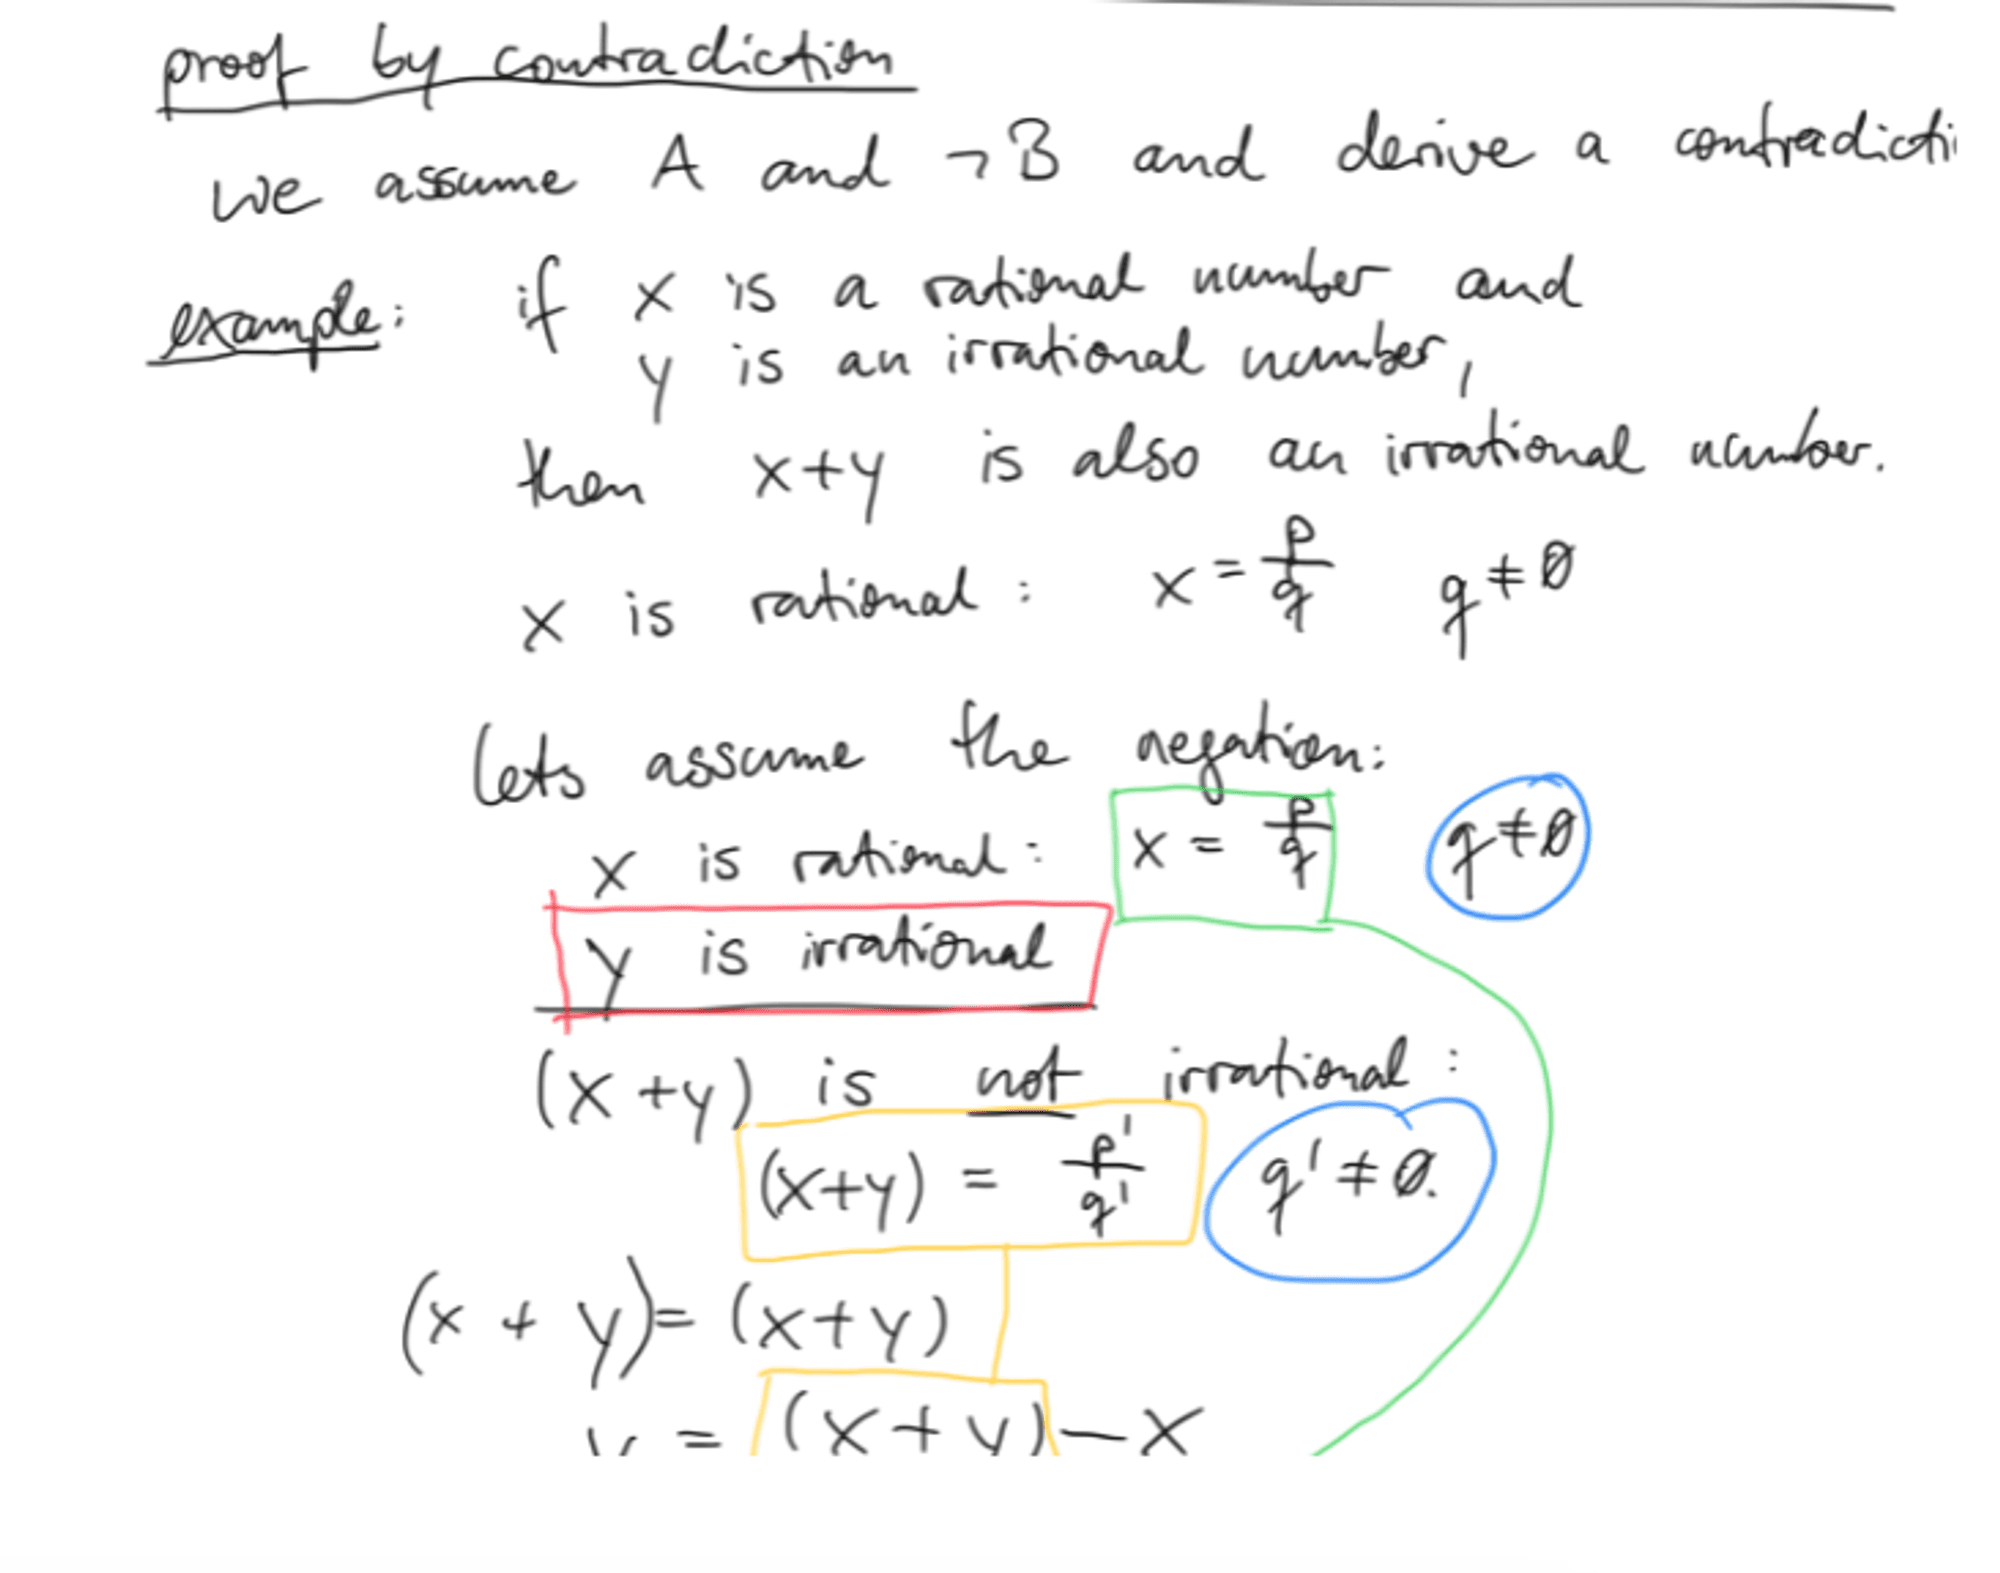 proof by contradiction
we assume A and ¬B and derive a contradicti
example: if x is a rational number and
y is an irrational number,
then x+y is also an irrational number.
x is rational: x = p/q q ≠ 0
Lets assume the negation:
x is rational: x = p/q q ≠ 0
y is irrational
(x+y) is not irrational:
(x+y) = p'/q' q' ≠ 0.
(x + y) = (x+y)
y = (x+y) - x